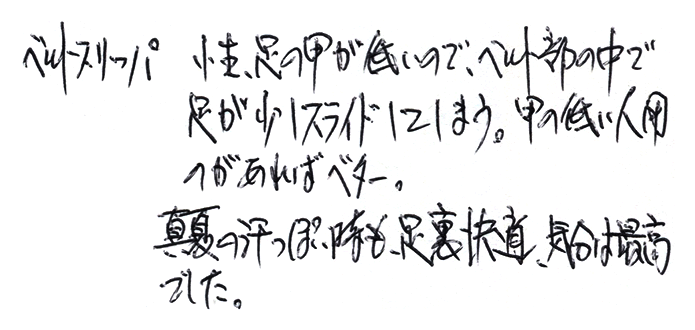 ベルトスリッパ 小生、足の甲が低いので、ベルト部の中で
足が少しスライドしてしまう。甲の低い人用
のがあればベター。
真夏の汗っぽい時も、足裏快適、気分は最高
でした。